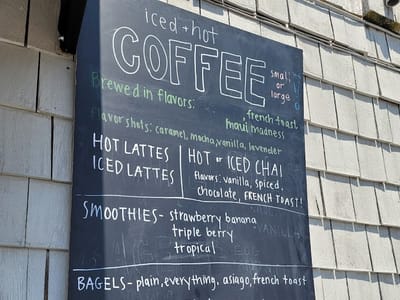 iced + hot
COFFEE
small
or
large
Brewed in flavors:
french toast
maui madness
flavor shots: caramel, mocha, vanilla, lavender
HOT LATTES
ICED LATTES
HOT or ICED CHAI
flavors: vanilla, spiced,
chocolate, FRENCH TOAST!
SMOOTHIES- strawberry banana
triple berry
tropical
BAGELS- plain, everything, asiago, french toast